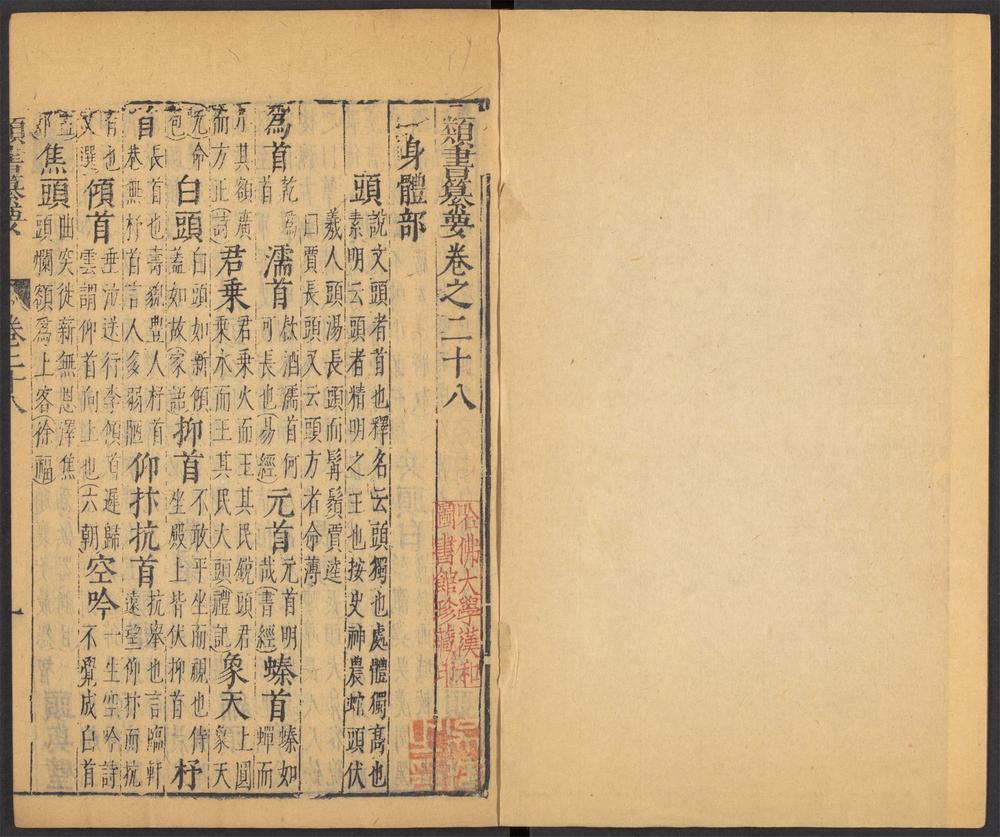 類書纂要卷之二十八
哈佛大學漢和
圖書館珍藏印
一身體部
頭
說文頭者首也釋名云頭獨也處體獨高也
素明云頭者精明之主也按史神農蛇頭伏
羲人頭湯長頭而髯鬚賈逵
曰賈長頭又云頭方者命薄
為首
乾為
首
濡首
飲酒濡首何
可長也(易經)
元首
元首明
哉(書經)
螓首
螓如
蟬而
小其額廣
而方正(詩)
君乘
君乘火而王其民銳頭君
乘水而王其民大頭(禮記)
象天
上圓
象天
元命
包)
白頭
白頭如新傾
蓋如故(家語)
抑首
不敢平坐而視也侍
坐殿上皆伏抑首
杼
首
長首也壽貌豐人杼首
巷無杼首言人多弱
仰抃抗首
抗舉也言臨軒
遠望仰抃而抗
首也
文選)
傾首
垂涕送行李傾首遲歸
雲謂仰首向上也(六朝)
空吟
一生空吟詩
不覺成白首
孟郊)
焦頭
曲突徙新無恩澤焦
頭爛額為上客(徐福)
類書纂要
卷二十八
一